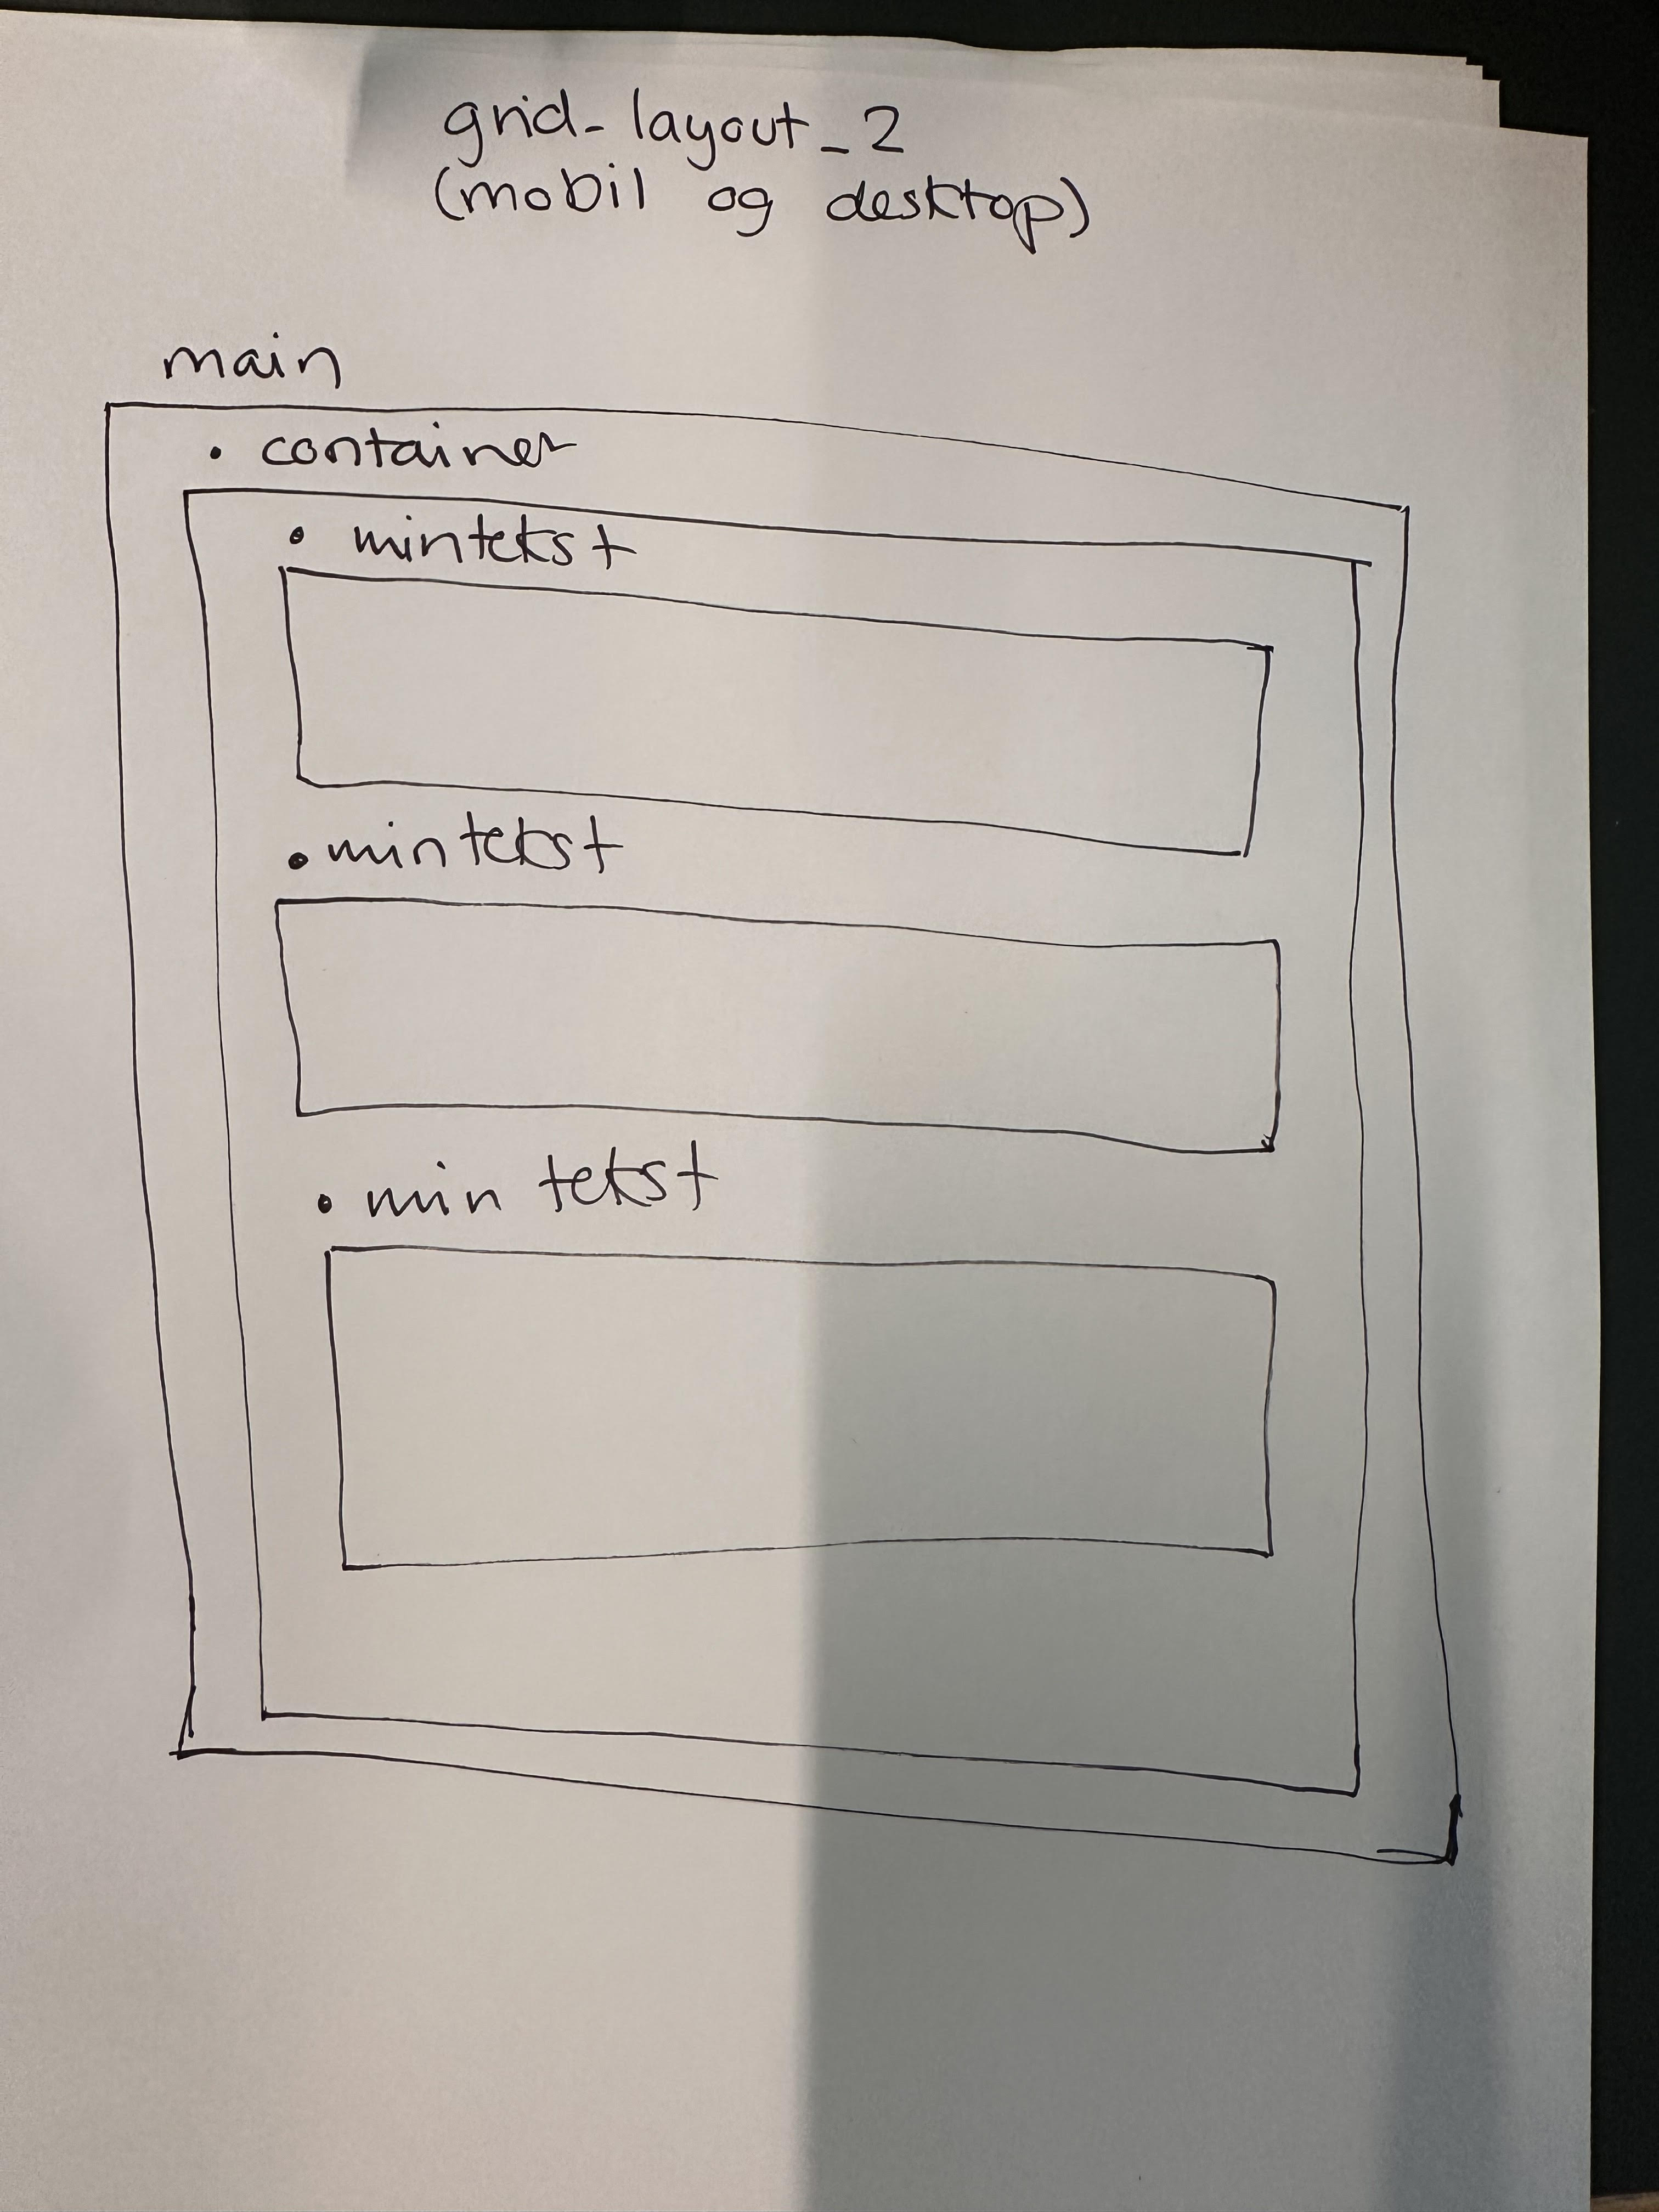 grid_layout_2
(mobil og desktop)
main
• container
• mintekst
• mintekst
• min tekst